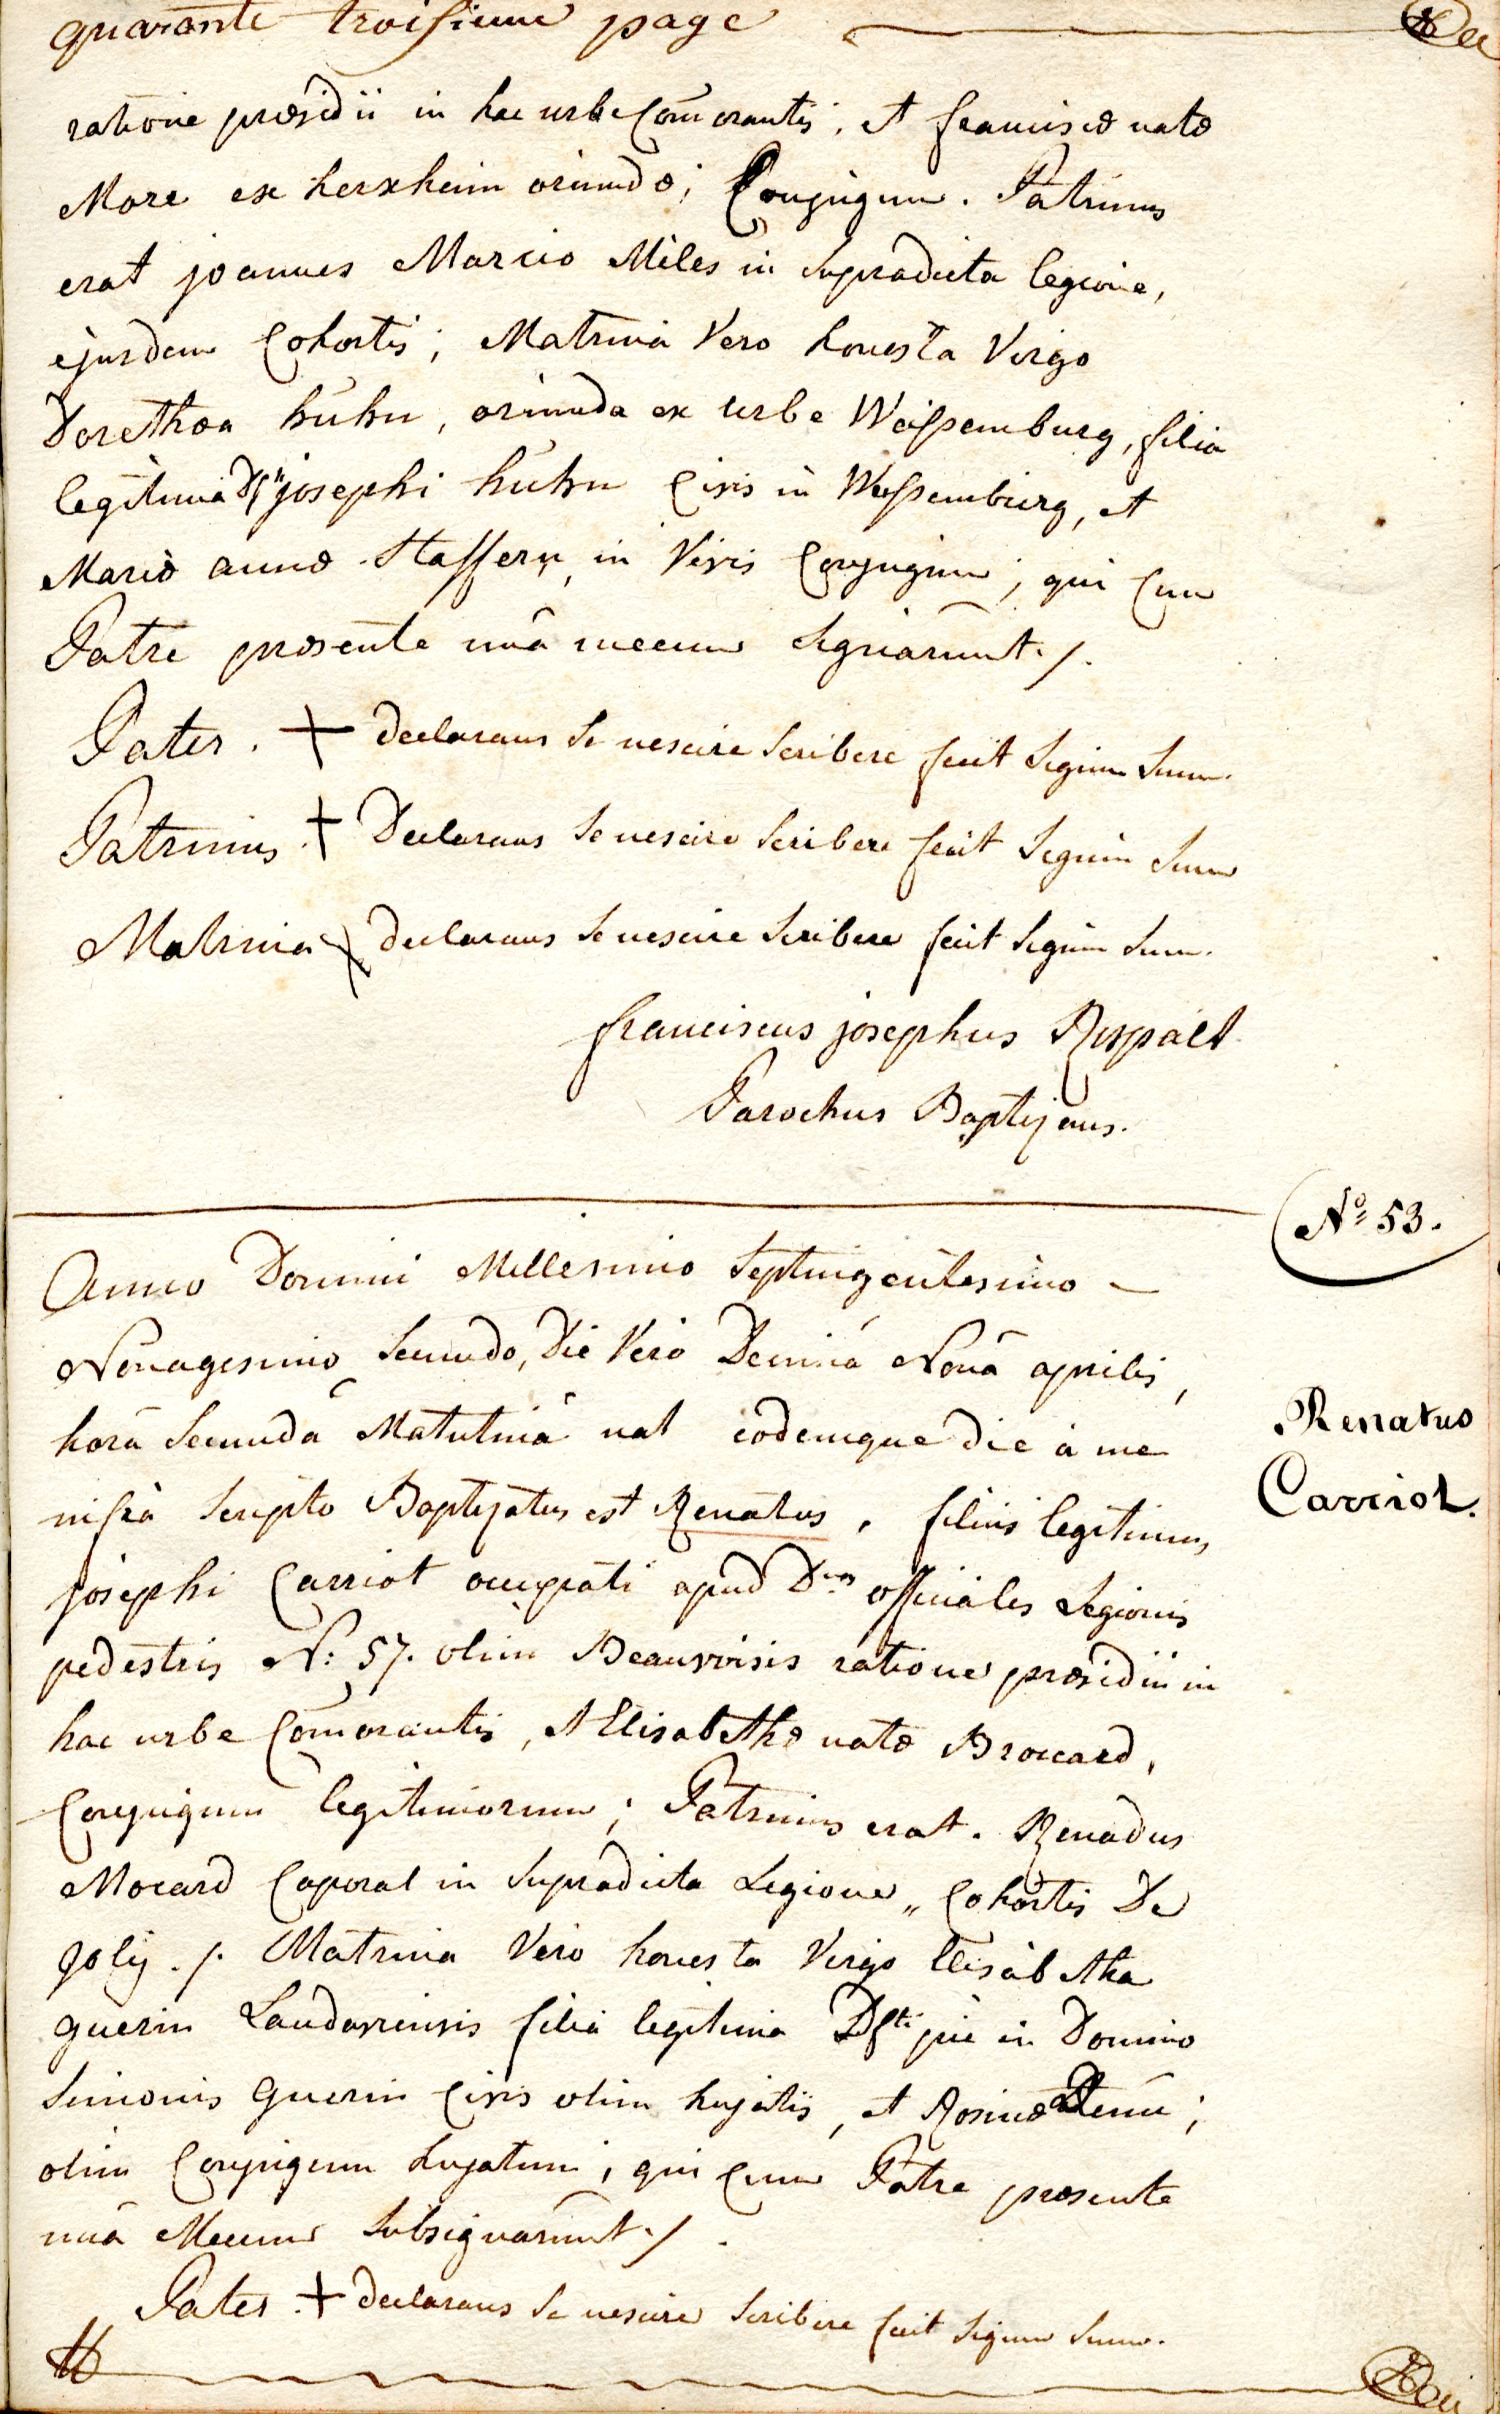 quarante troisieme page
ratione præsidii in hac urbe Com̄orantis, et franciscæ natæ
More ex herxheim oriundæ; Conjugum. Patrinus
erat joannes Marcio Miles in supradicta legione,
ejusdem Cohortis; Matrina Vero honesta Virgo
Dorethea huhn, oriunda ex urbe Weissemburg, filia
legitima josephi huhn Civis in Weissemburg, et
Mariæ annæ Stafferr, in Vivis Conjugum; qui Cum
Patre præsente unâ mecum signarunt ·/.
Pater. + declarans se nescire scribere fecit signum suum.
Patrinus + Declarans se nescire scribere fecit signum suum
Matrina + declarans se nescire scribere fecit signum suum.
franciscus josephus Rispalt
Parochus Baptizans.
N.º 53.
Anno Domini Millesimo Septuingentesimo —
Nonagesimo secundo, Die Vero Decimâ Nonâ aprilis,
horâ secundâ Matutinâ nat eodemque die à me
infra scripto Baptizatus est Renatus, filius legitimus
josephi Carriot occupati apud D.nos officiales Legionis
pedestris N: 57. olim Beauvoisis ratione præsidii in
hac urbe Com̄orantis, et Elisabethæ natæ Brocard,
Conjugum legitimorum; Patrinus erat. Renadus
Mocard Caporal in supradicta Legione „ Cohortis De
joly ./. Matrina Vero honesta Virgo Elisabetha
guerin Landaviensis filia legitima Dfti pie in Domino
simonis Guerin Civis olim hujatis, et Rosinæ
olim Conjugum hujatum; qui Cum Patre præsente
unâ Mecum subsignarunt ·/.
Pater. + declarans se nescire scribere fecit signum suum.
Renatus
Carriot.